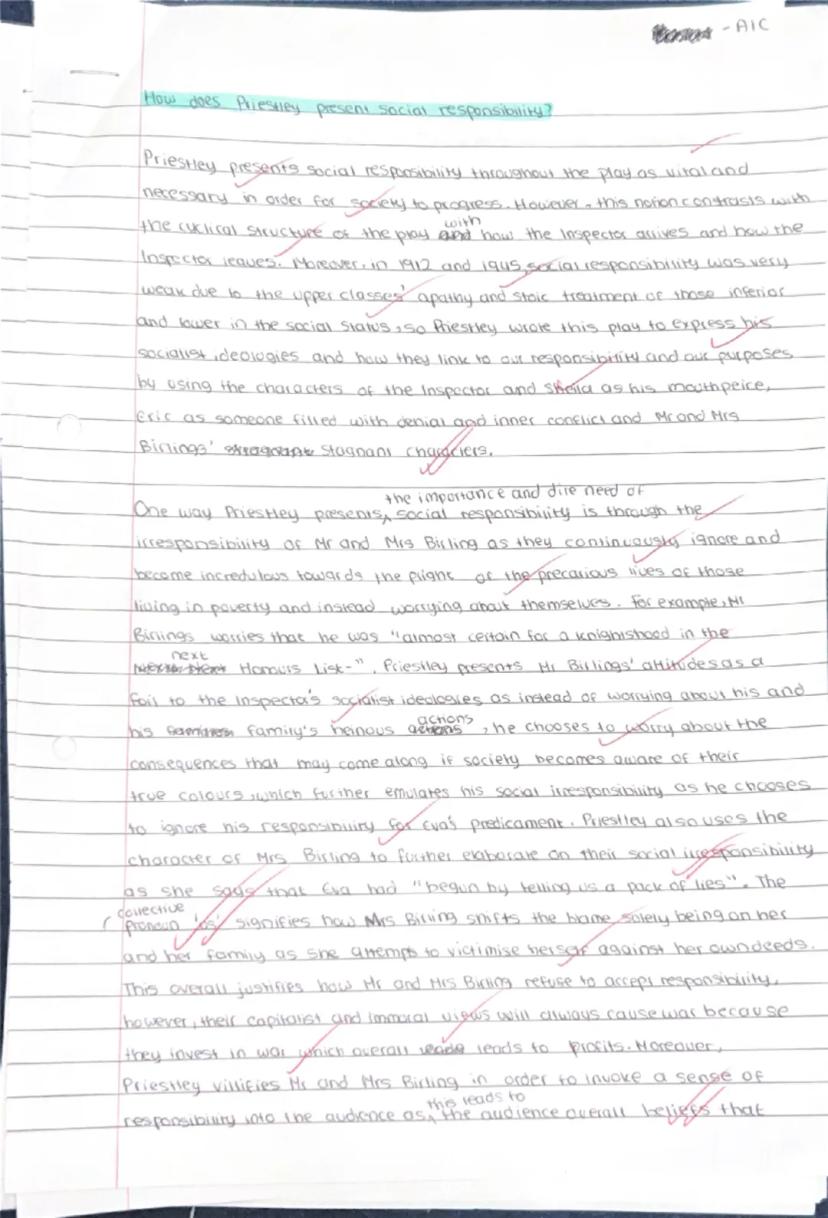 - AIC
How does Priestley present social responsibility?
Priestley presents social responsibility throughout the play as vital and
necessary in order for society to progress. However, this notion contrasts with
the cyclical structure of the play with how the Inspector arrives and how the
Inspector leaves. Moreover, in 1912 and 1945, social responsibility was very
weak due to the upper classes' apathy and stoic treatment of those inferior
and lower in the social status, so Priestley wrote this play to express his
socialist ideologies and how they link to our responsibility and our purposes
by using the characters of the Inspector and Sheila as his mouthpeice,
Eric as someone filled with denial and inner conflict and Mr and Mrs
Birlings' stagnant characters.
One way Priestley presents the importance and dire need of social responsibility is through the
irresponsibility of Mr and Mrs Birling as they continuously ignore and
become incredulous towards the plight of the precarious lives of those
living in poverty and instead worrying about themselves. For example, Mr
Birlings worries that he was "almost certain for a knightshood in the
next Honours List-". Priestley presents Mr Birlings' attitudes as a
foil to the Inspector's socialist ideologies as instead of worrying about his and
his family's heinous actions, he chooses to worry about the
consequences that may come along if society becomes aware of their
true colours, which further emulates his social irresponsibility as he chooses
to ignore his responsibility for Eva's predicament. Priestley also uses the
character of Mrs Birling to further elaborate on their social irresponsibility
as she says that Eva had "begun by telling us a pack of lies". The
collective pronoun 'us' signifies how Mrs Birling shifts the blame solely being on her
and her family as she attempts to victimise herself against her own deeds.
This overall justifies how Mr and Mrs Birling refuse to accept responsibility,
however, their capitalist and immoral views will always cause war because
they invest in war which overall leads to profits. Moreover,
Priestley villifies Mr and Mrs Birling in order to invoke a sense of
responsibility into the audience as, this leads to the audience overall beliefs that